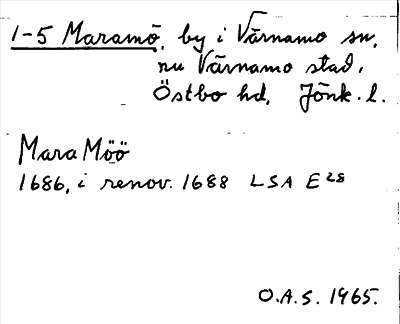 1-5 Maramö, by i Värnamo sn,
nu Värnamo stad,
Östbo hd, Jönk. l.
Mara Möö
1686, i renov. 1688 LSA E28
O.A.S. 1965.